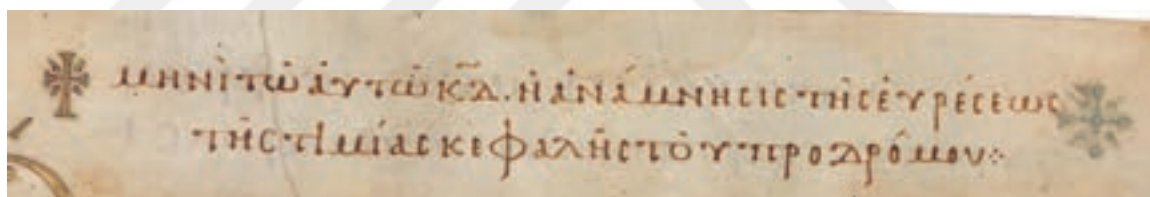 μηνὶ τῶ ἀυτῶ κ̅δ̅. ἡ ἀνάμνησις τῆς ἑυρέσεως
τῆς τιμίας κεφαλῆς τοῦ προδρόμου